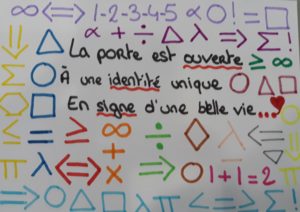 ∞ <=> 1-2-3-4-5 ∝ O ! = □
∝ + ÷ △ λ => Σ!
La porte est ouverte ≥ ∞
À une identité unique O △ □
En signe d'une belle vie...♥
≤ = ≥ ∞ ÷ ◇ λ <=
π λ <=> + x O 1+1=2 π
=> O △ □ π λ <=> Σ!